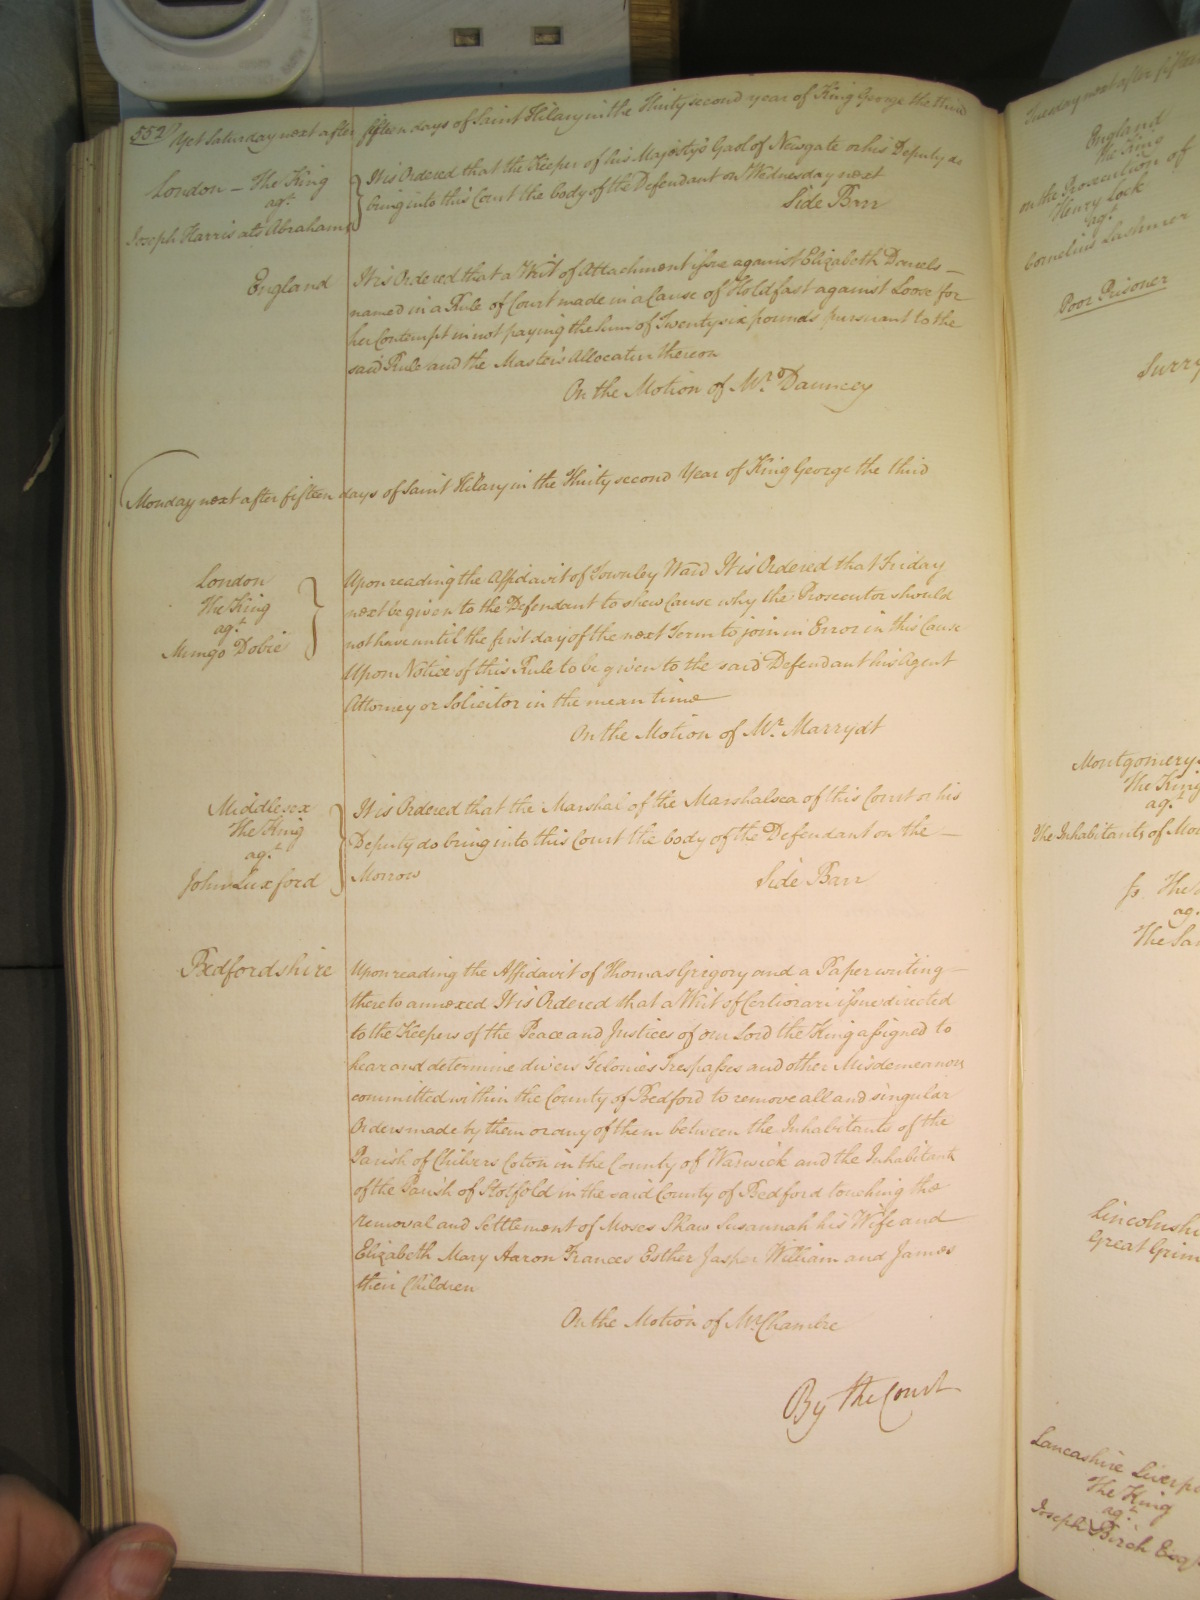 552 Yet Saturday next after fifteen days of Saint Hilary in the Thirty second year of King George the third
London - The King
agt
Joseph Harris ats Abrahams
It is Ordered that the Keeper of his Majesty's Gaol of Newgate or his Deputy do
bring into this Court the body of the Defendant on Wednesday next
Side Barr
England
It is Ordered that a Writ of Attachment issue against Elizabeth Daniels
named in a Rule of Court made in a Cause of Holdfast against Loose for
her Contempt in not paying the Sum of Twenty six pounds pursuant to the
said Rule and the Master's Allocatur thereon
On the Motion of Mr. Dauncey
Monday next after fifteen days of Saint Hilary in the Thirty second Year of King George the third
London
The King
agt
Mungo Dobie
Upon reading the Affidavit of Townley Ward It is Ordered that Friday
next be given to the Defendant to shew Cause why the Prosecutor should
not have until the first day of the next Term to join in Error in this Cause
Upon Notice of this Rule to be given to the said Defendant his Agent
Attorney or Solicitor in the mean time
On the Motion of Mr. Marryat
Middlesex
The King
agt
John Luxford
It is Ordered that the Marshal of the Marshalsea of this Court or his
Deputy do bring into this Court the body of the Defendant on the
Morrow
Side Barr
Bedfordshire
Upon reading the Affidavit of Thomas Grigory and a Paper writing
thereto annexed It is Ordered that a Writ of Certiorari issue directed
to the Keepers of the Peace and Justices of our Lord the King assigned to
hear and determine divers Felonies Trespasses and other Misdemeanors
committed within the County of Bedford to remove all and singular
Orders made by them or any of them between the Inhabitants of the
Parish of Chilvers Coton in the County of Warwick and the Inhabitants
of the Parish of Stotfold in the said County of Bedford touching the
removal and Settlement of Moses Shaw Susannah his Wife and
Elizabeth Mary Aaron Frances Esther Jasper William and James
their Children
On the Motion of Mr Chambre
By the Court
Tuesday next after fifteen
England
The King
on the Prosecution of
Henry Lock
agt
Cornelius Lashmer
Poor Prisoner
Surry
Montgomery
The King
agt
The Inhabitants of
The
agt
The
Lincolnshi
Great Grim
Lancashire Liverpo
The King
agt
Joseph Birch Esq